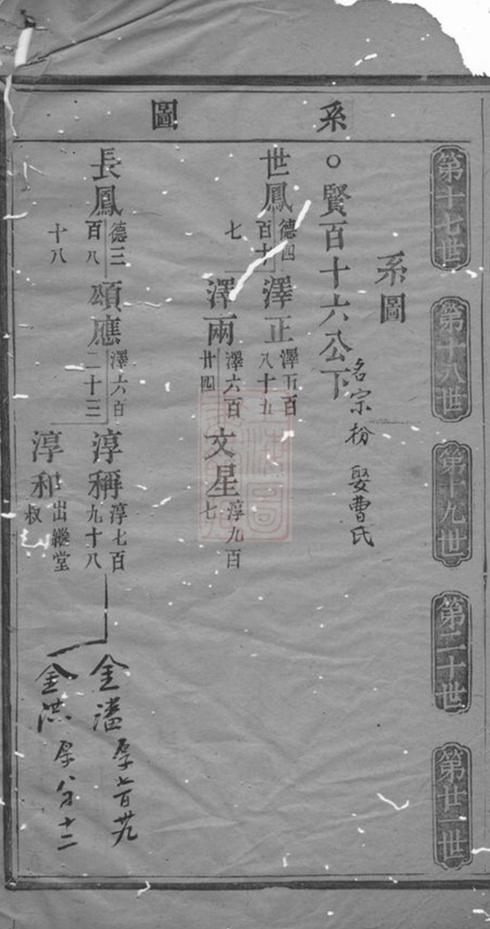 系圖
第十七世
第十八世
第十九世
第二十世
第廿一世
系圖
○賢百十六公下
名宗粉 娶曹氏
世鳳 德四百十七
澤正 澤五百八十五
澤兩 澤六百廿四
文星 淳九百七
長鳳 德三百八十八
頌應 澤六百二十三
淳稱 淳七百九十八
淳和 出繼堂叔
金潘 厚百廿九
金洪 厚八十二